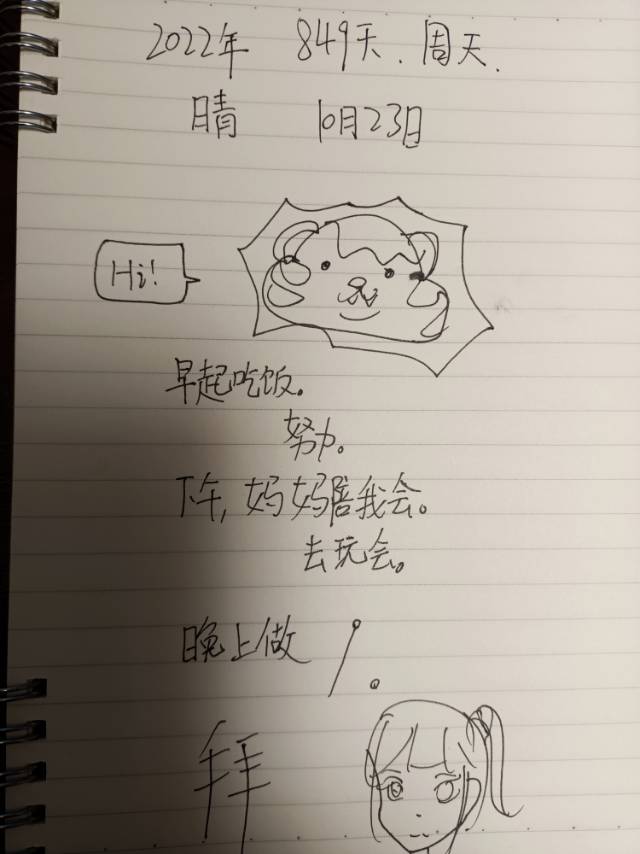 2022年 849天.周天.
晴 10月23日
Hi!
早起吃饭。
努力。
下午,妈妈陪我会。
去玩会。
晚上做
拜